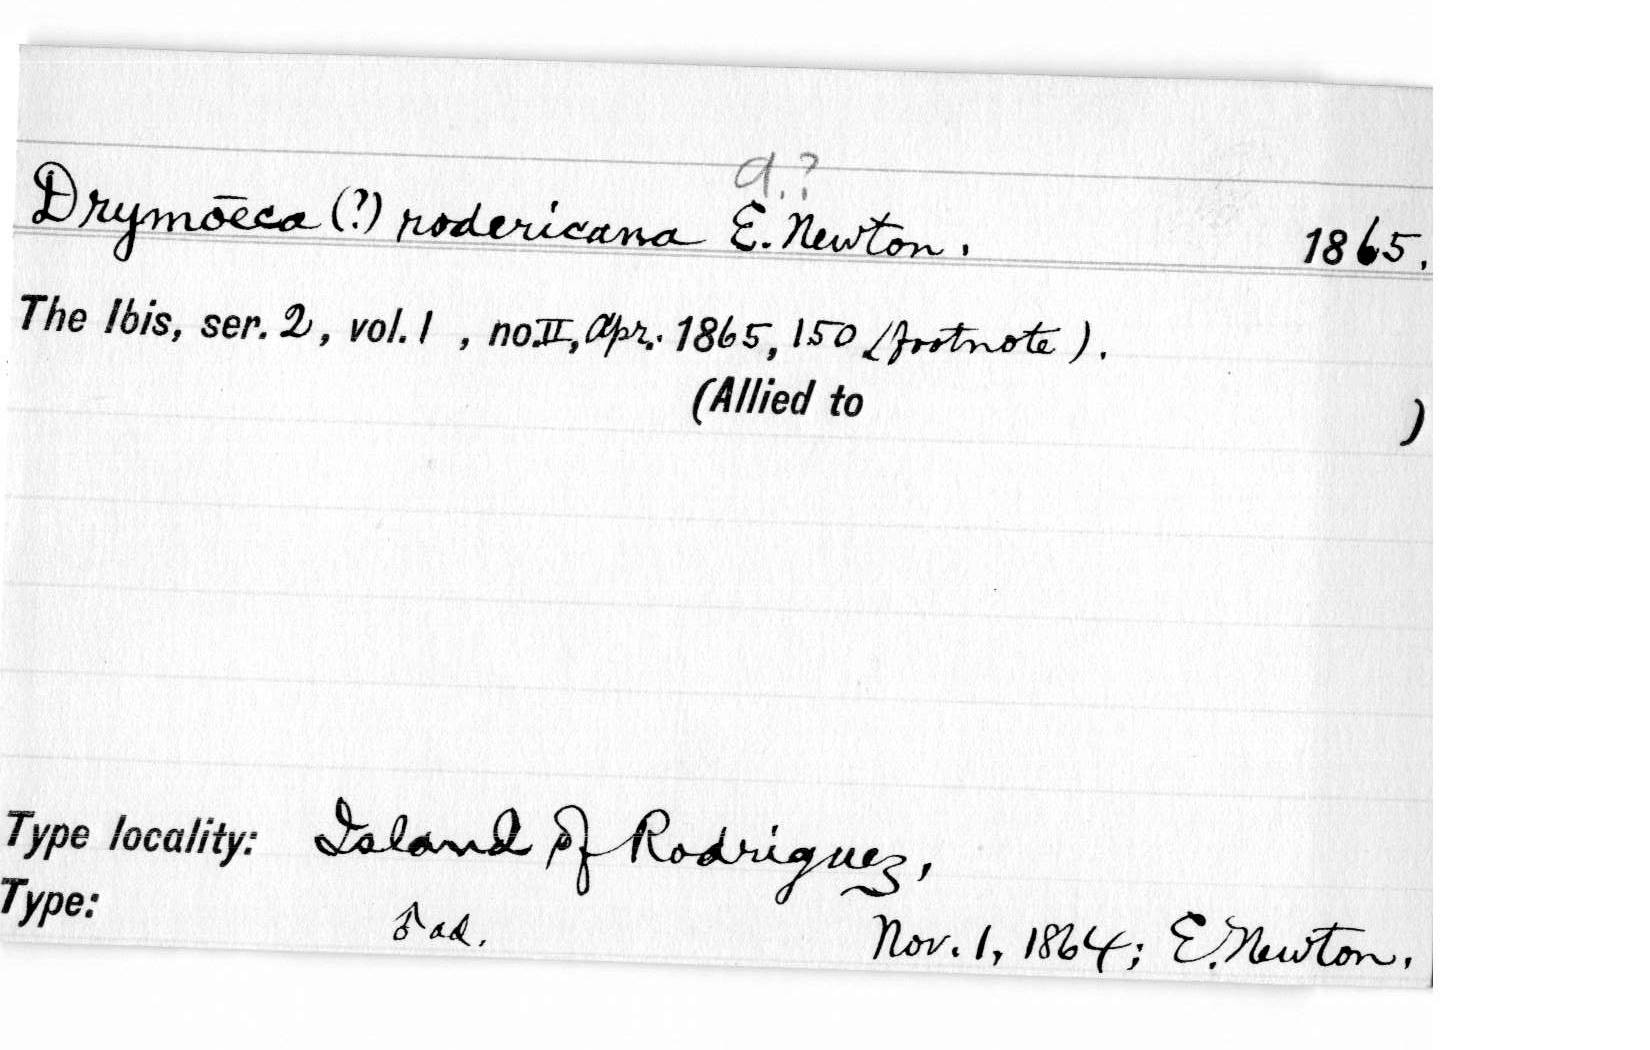 A.?
Drymōeca (?) rodericana E. Newton. 1865.
The Ibis, ser. 2, vol. 1, no. II, Apr. 1865, 150 (footnote).
(Allied to )
Type locality: Island of Rodriguez,
Type: ♂ ad. Nov. 1, 1864; E. Newton.